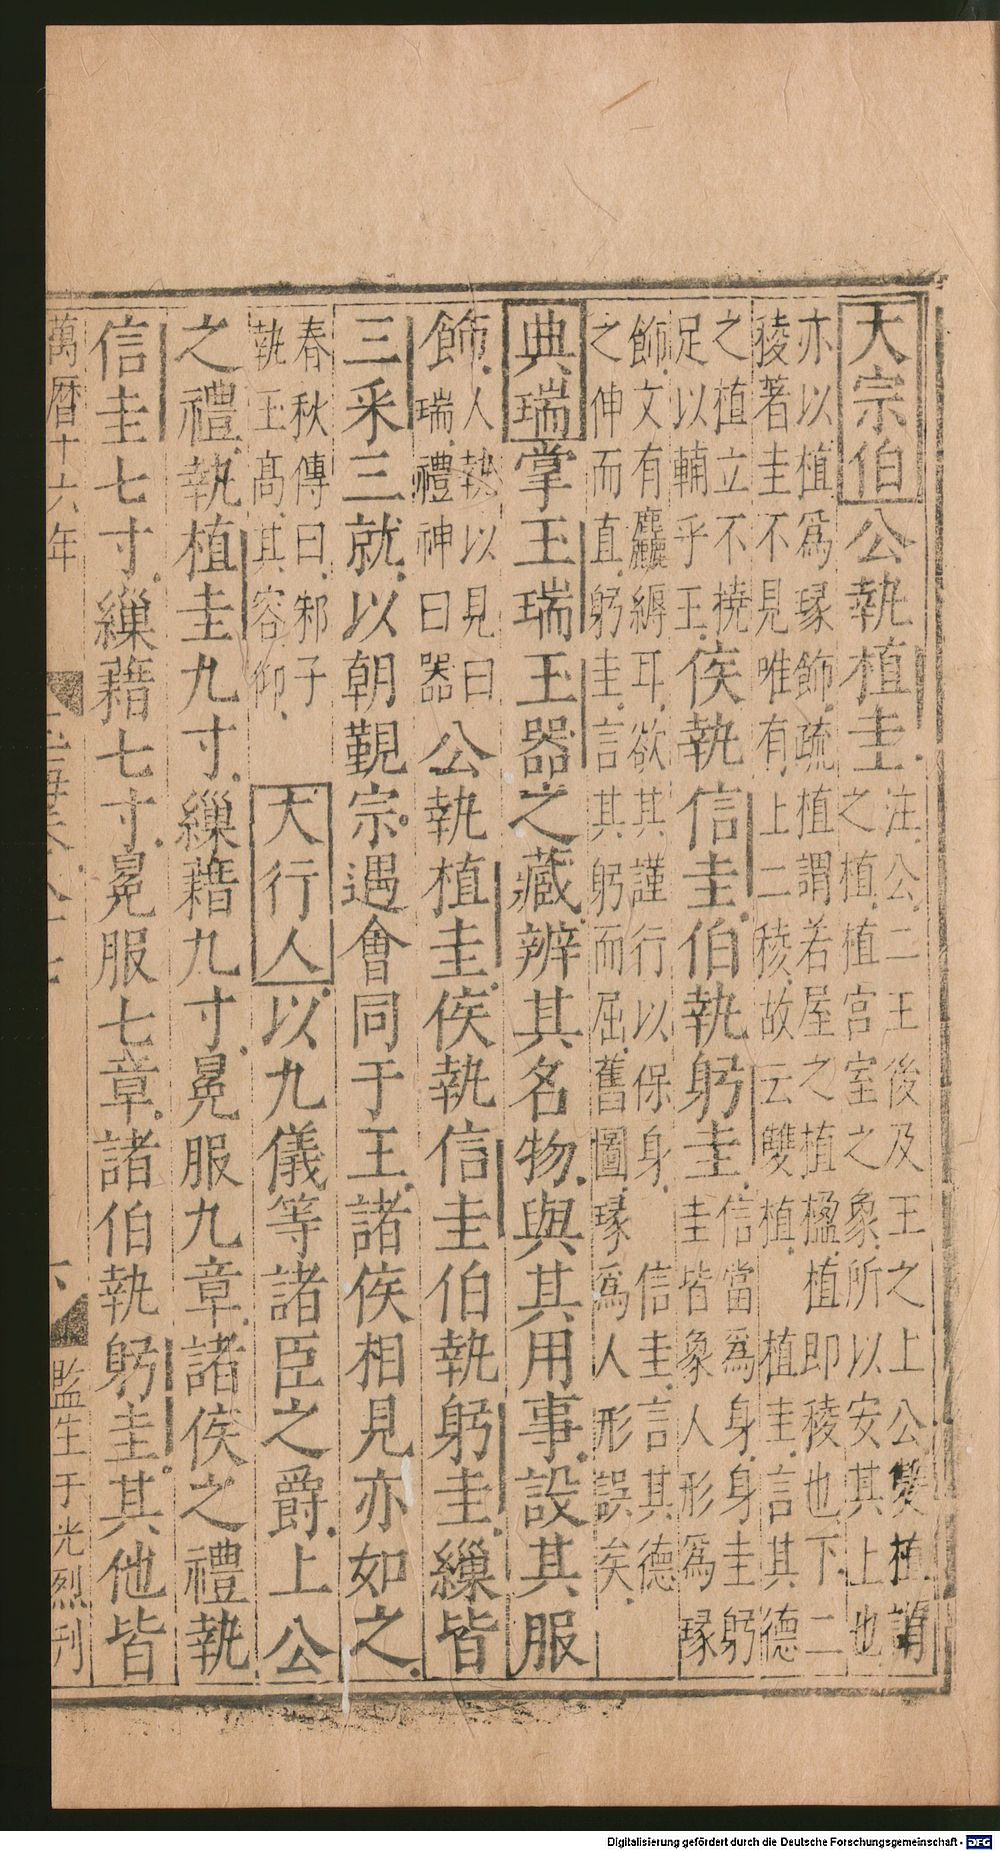 大宗伯公執植圭注公二王後及王之上公雙植謂
之植植宮室之象所以安其上也
亦以植爲瑑飾疏植謂若屋之植楹植即稜也下二
稜著圭不見唯有上二稜故云雙植 植圭言其德
之植立不橈
足以輔乎王侯執信圭伯執躬圭信當爲身身圭躬
圭皆象人形爲瑑
飾文有麤縟耳欲其謹行以保身 信圭言其德
之伸而直躬圭言其躬而屈舊圖瑑爲人形誤矣
典瑞掌王瑞玉器之藏辨其名物與其用事設其服
飾人執以見曰
瑞禮神曰器公執植圭侯執信圭伯執躬圭繅皆
三采三就以朝覲宗遇會同于王諸侯相見亦如之
春秋傳曰邾子
執玉高其容仰 大行人以九儀等諸臣之爵上公
之禮執植圭九寸繅藉九寸冕服九章諸侯之禮執
信圭七寸繅藉七寸冕服七章諸伯執躬圭其他皆
萬曆十六年
監生于光烈刊
Digitalisierung gefördert durch die Deutsche Forschungsgemeinschaft - DFG